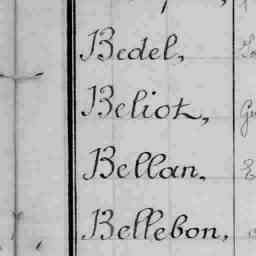 Bedel,
Beliot,
Bellan,
Bellebon,